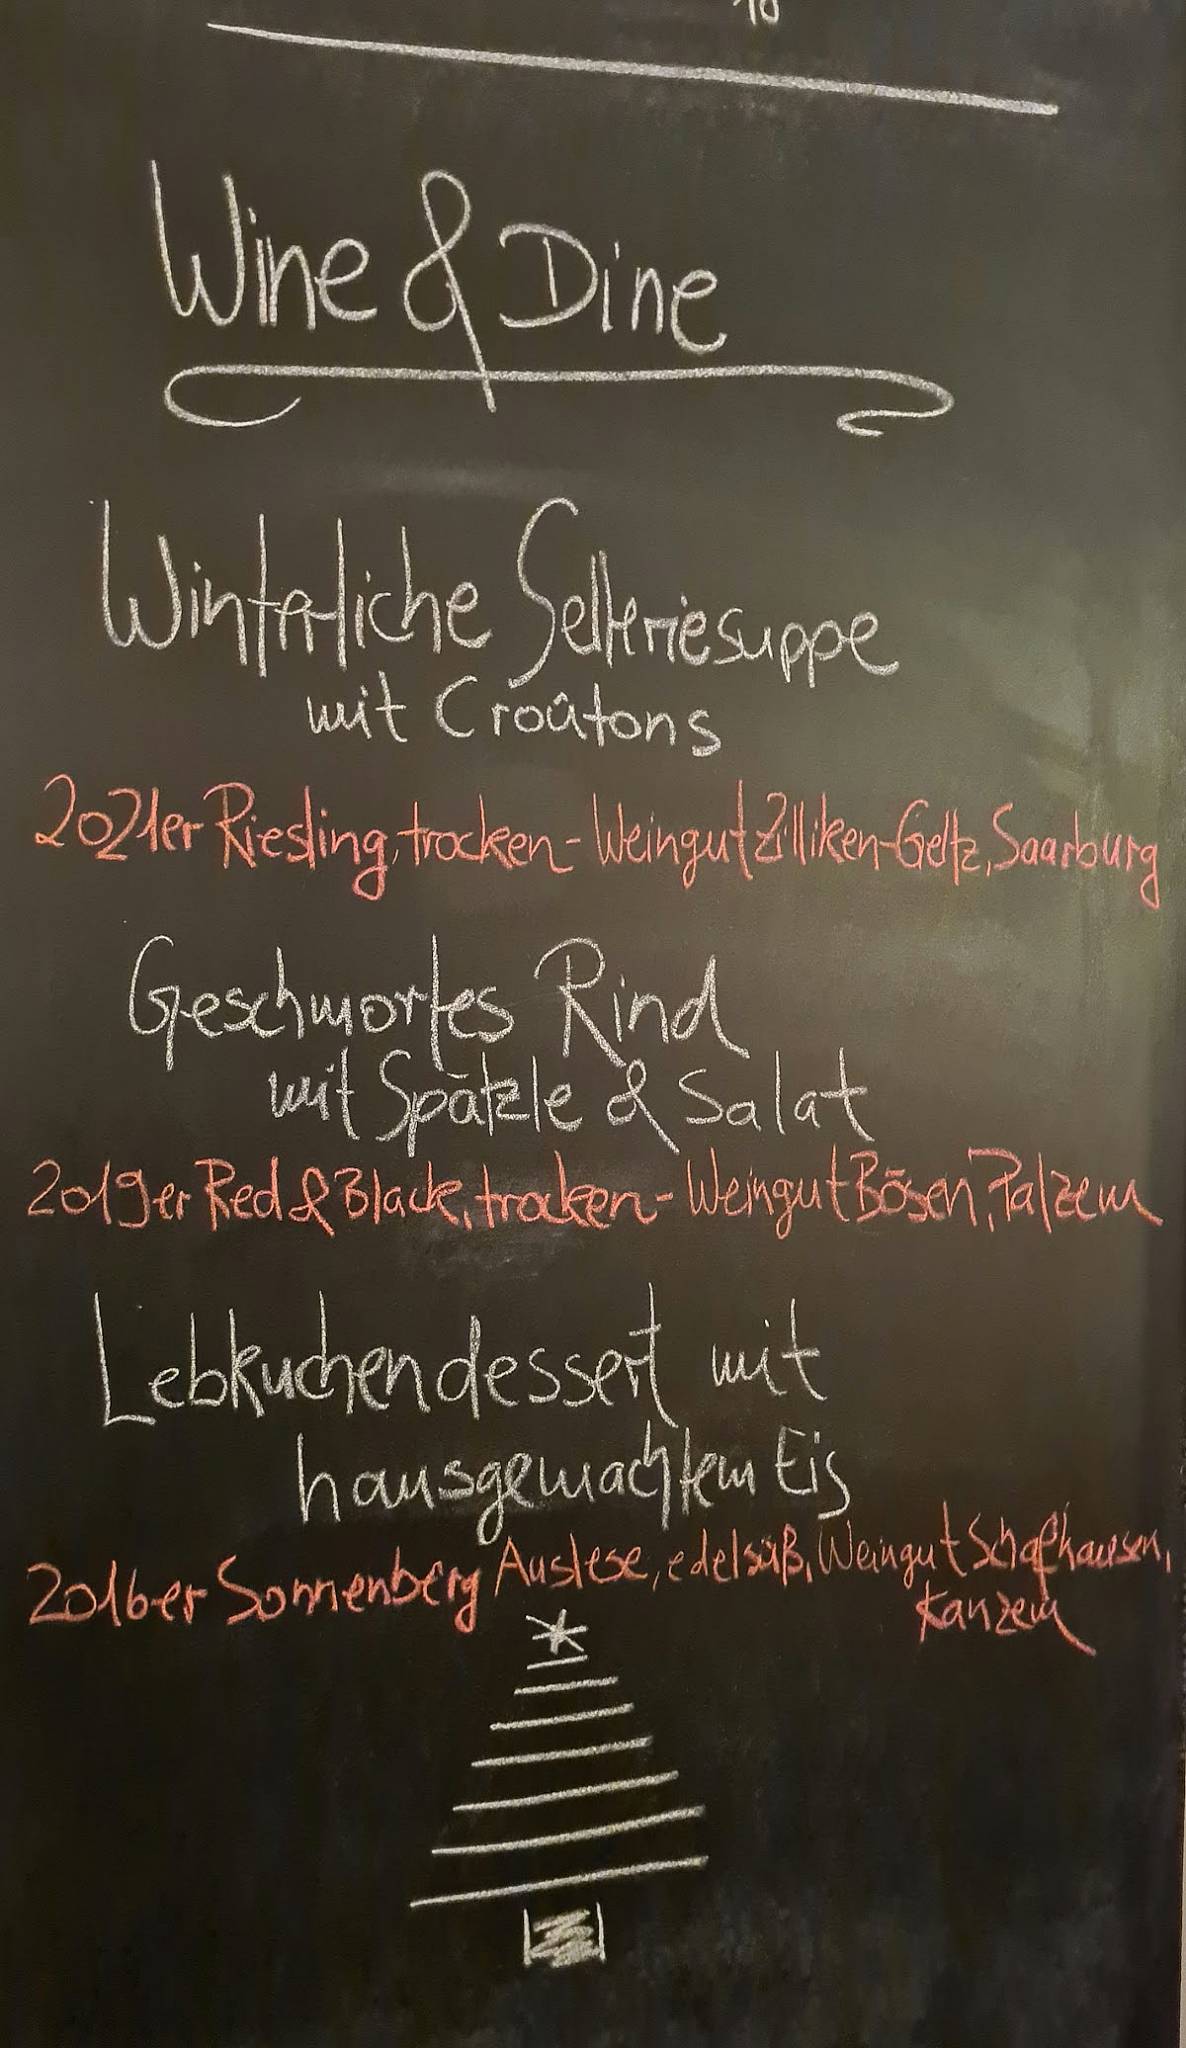 Wine & Dine
Winterliche Selleriesuppe
mit Croûtons
2021er Riesling, trocken - Weingut Zilliken-Geltz, Saarburg
Geschmortes Rind
mit Spätzle & Salat
2019er Red & Black, trocken - Weingut Bösen, Palzem
Lebkuchendessert mit
hausgemachtem Eis
2016er Sonnenberg Auslese, edelsüß, Weingut Schafhausen,
Kanzem